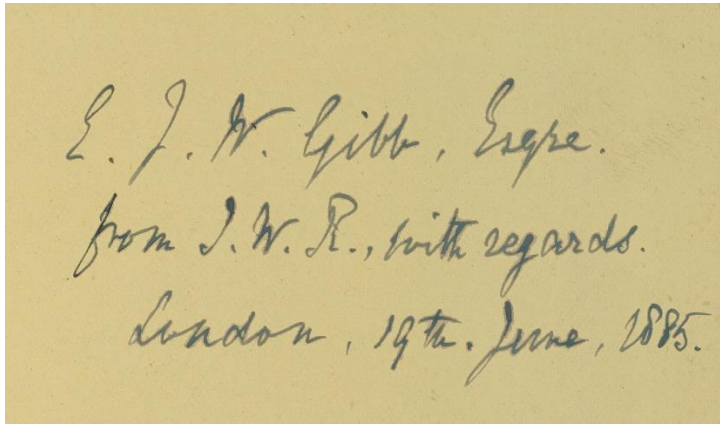 E. J. W. Gibb, Esqre.
from J. W. R., with regards.
London, 19th. June, 1885.